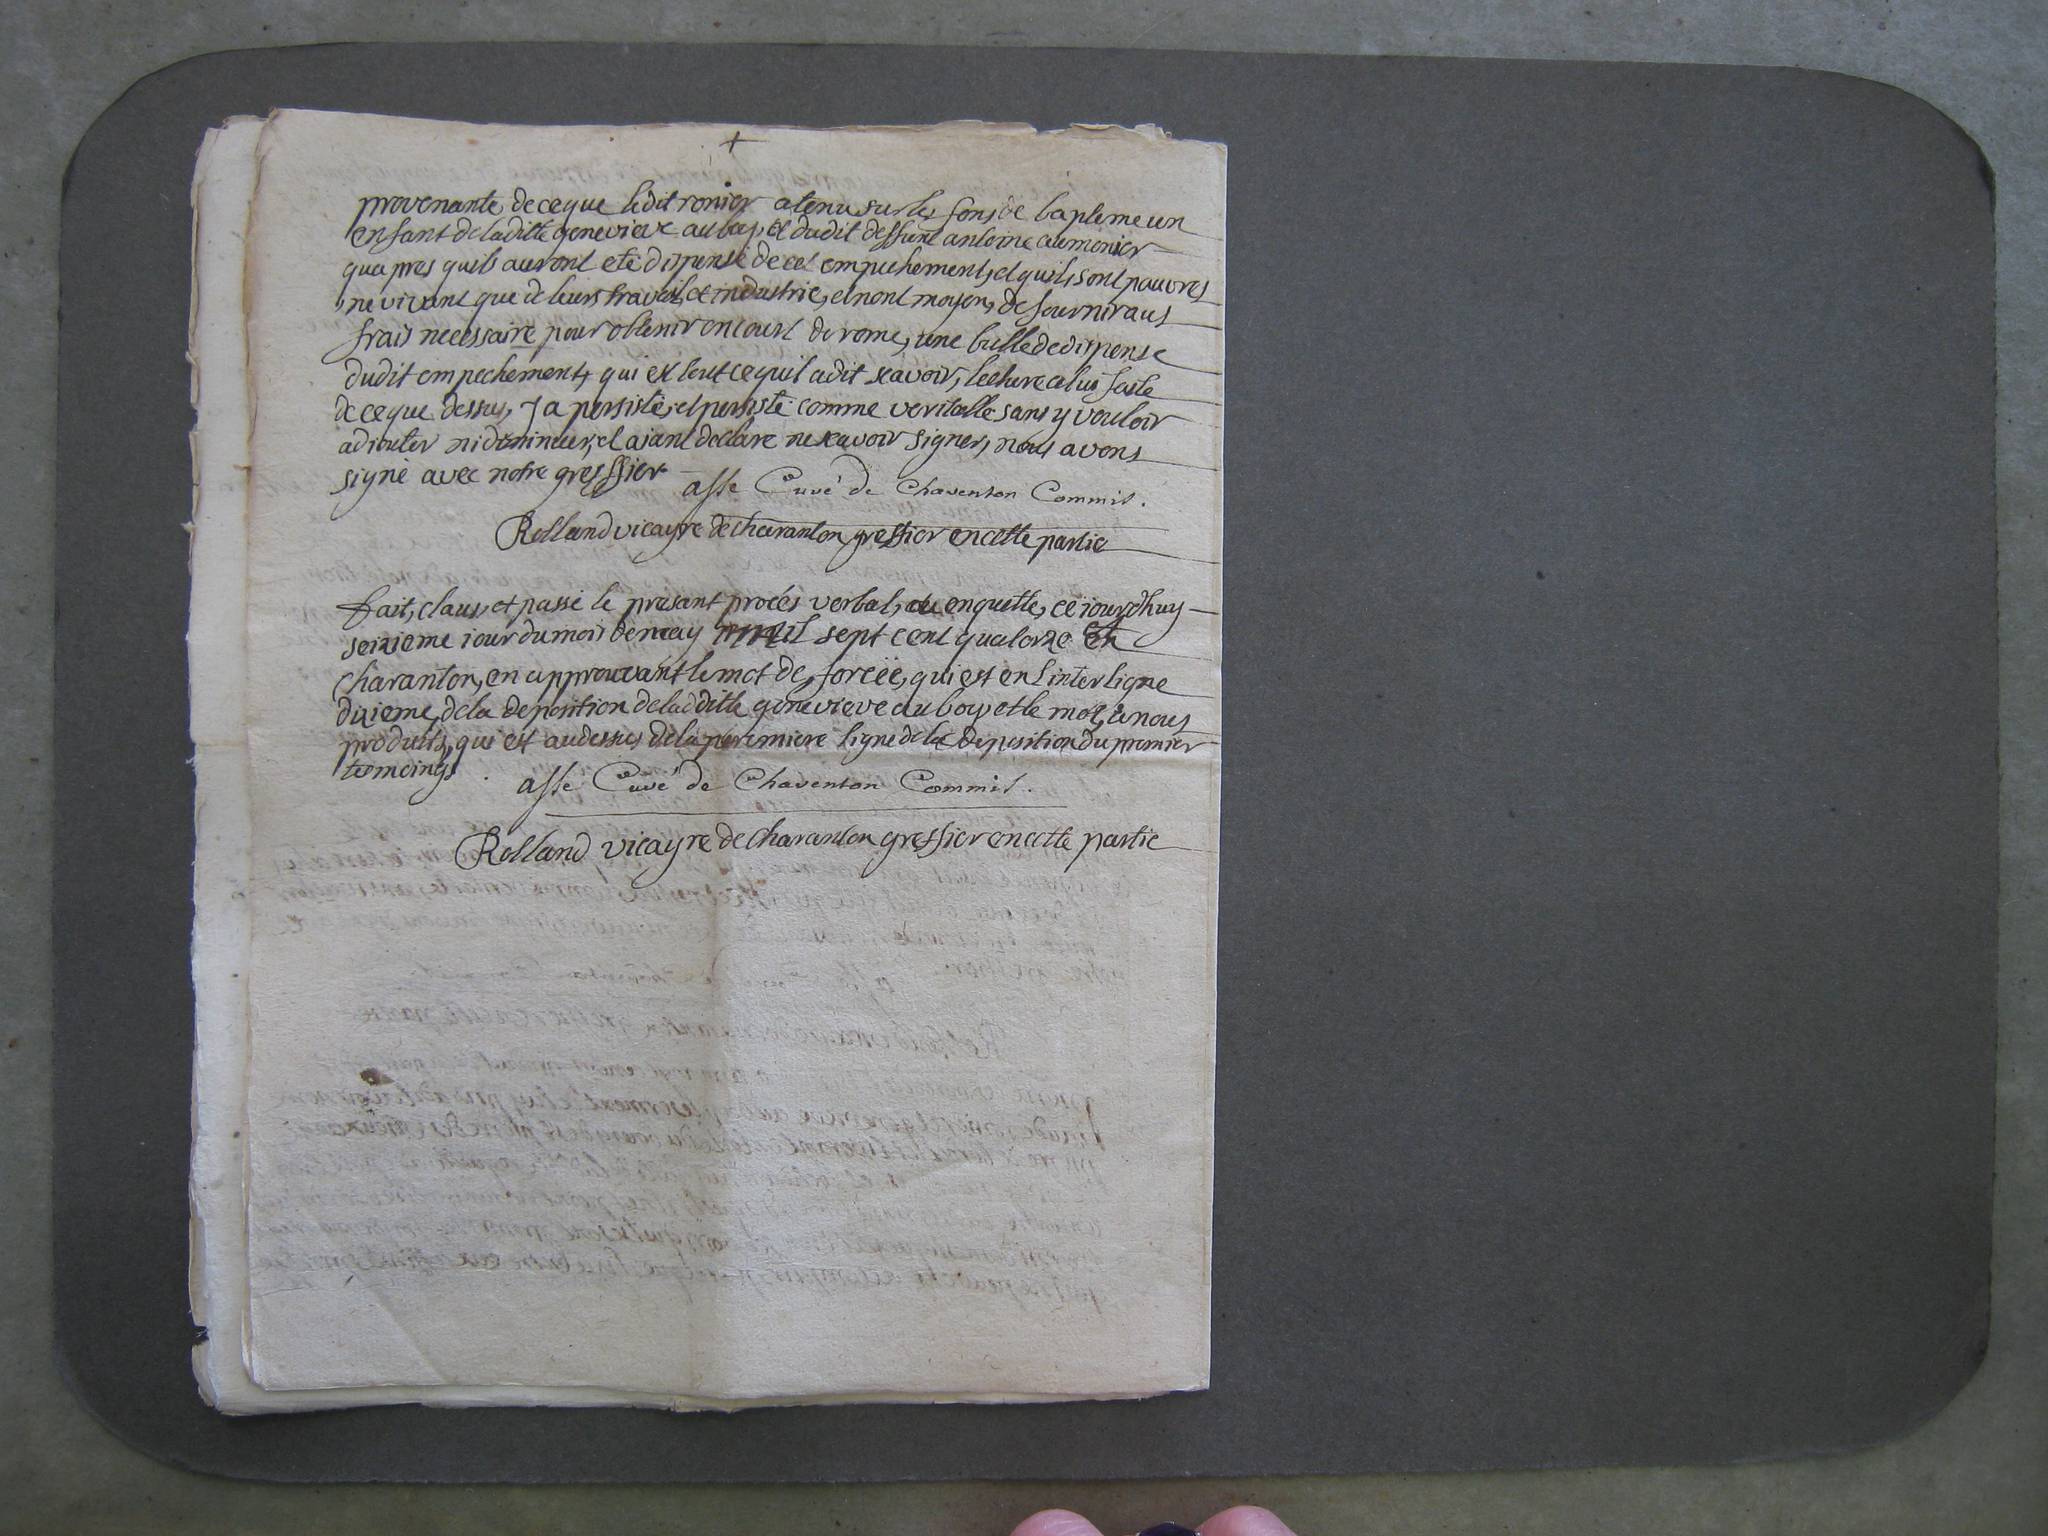 +
provenante de ce que ledit ronier a tenu sur les fons de bapteme un
enfant de laditte genevieve auboy, et dudit deffunt antoine aumonier
qu apres quils auront eté dispensé de cet empechement, et quils sont pauvres
ne vivant que de leurs travail, et industrie, et nont moyen, de fournir aus
frais necessaire pour obtenir en court de rome, une bulle de dispense
dudit empechement, qui est tout ce quil a dit scavoir, lecture a lui faite
de ce que dessus, y a persisté, et persiste comme veritable sans y vouloir
adiouter ni diminuer, et aiant declaré ne scavoir signer, nous avons
signé avec notre greffier
asse Curé de Charenton Commis.
Rolland vicayre de charanton greffier en cette partie
fait, claus, et passé le present procés verbal, ou enquette, ce iourdhuy
seizieme iour du mois de may mil sept cent quatorze
charanton, en approuvant le mot de, forcëe, qui est en l interligne
dixieme, de la deposition de laditte genevieve auboy et le mot, a nous
produits, qui est audessus de la peremiere ligne de la deposition du premier
temoings
asse Curé de Charenton Commis.
Rolland vicayre de charanton greffier en cette partie